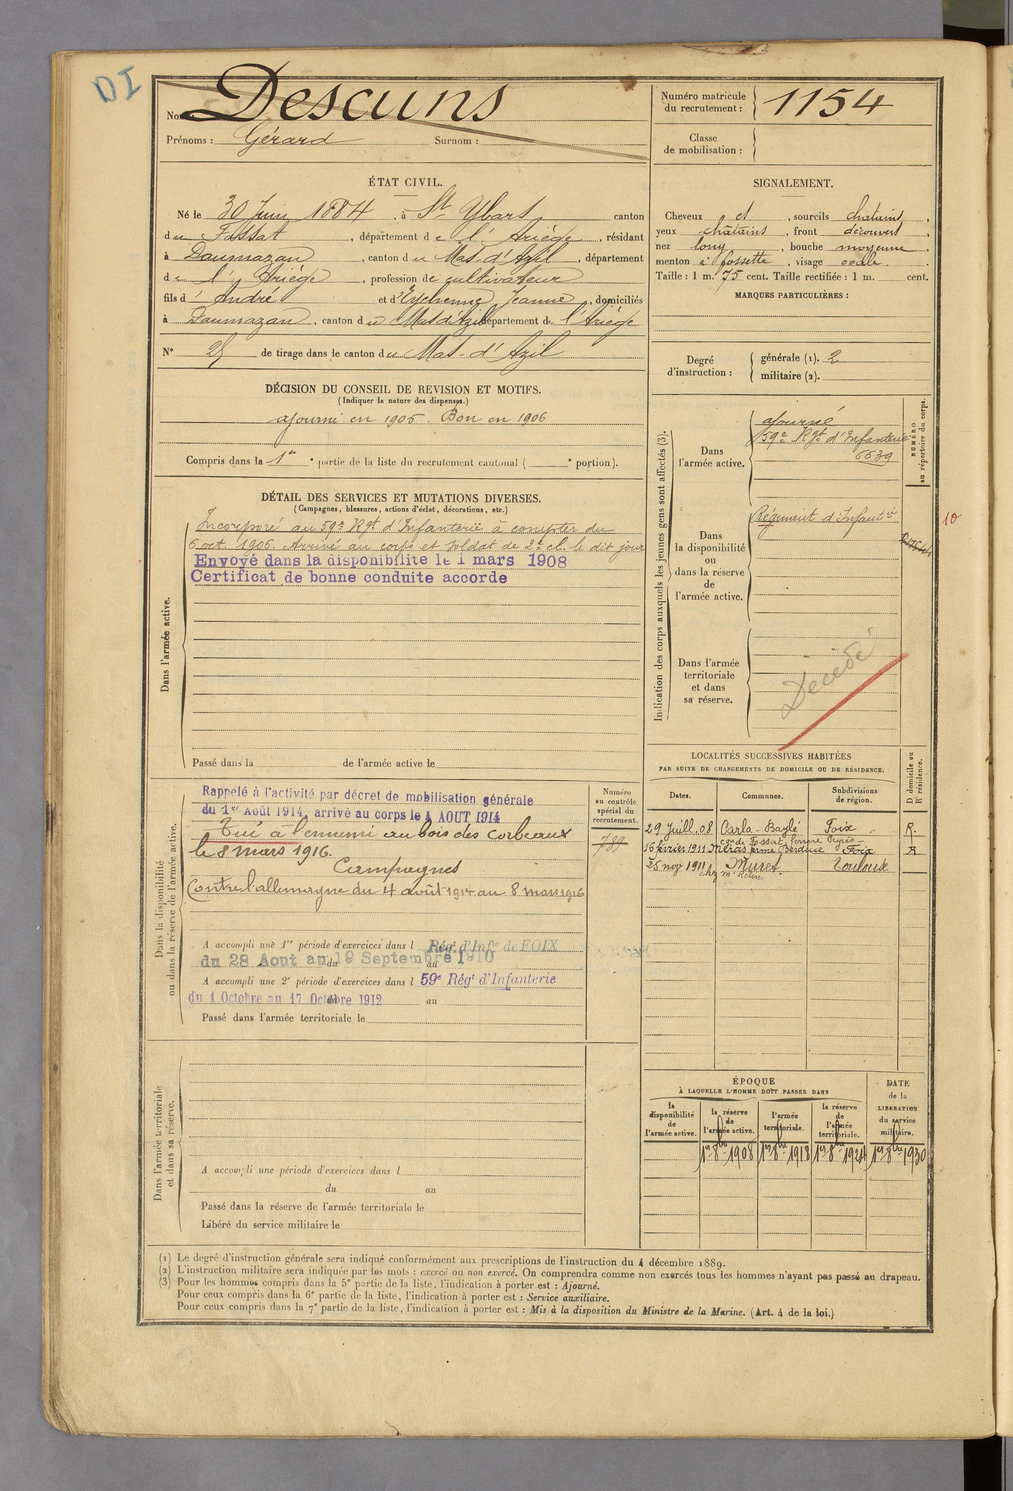 DI
Nom : Descuns
Prénoms : Gérard Surnom :
Numéro matricule du recrutement : 1154
Classe de mobilisation :
ÉTAT CIVIL.
Né le 30 Juin 1884, à St Ybars canton
du Fossat, département de l'Ariège, résidant
à Daumazan, canton du Mas-d'Azil, département
de l'Ariège, profession de cultivateur
fils d'André et d'Eychenne Jeanne, domiciliés
à Daumazan, canton du Mas d'Azil département de l'Ariège
N° de tirage dans le canton du Mas-d'Azil
SIGNALEMENT.
Cheveux et, sourcils chatains,
yeux châtains, front découvert,
nez long, bouche moyenne,
menton à fossette, visage ovale.
Taille : 1 m. 75 cent. Taille rectifiée : 1 m. cent.
MARQUES PARTICULIÈRES :
Degré d'instruction : générale (1). 2
militaire (2).
DÉCISION DU CONSEIL DE REVISION ET MOTIFS.
(Indiquer la nature des dispenses.)
ajourné en 1905. Bon en 1906
Compris dans la 1re partie de la liste du recrutement cantonal ( e portion).
DÉTAIL DES SERVICES ET MUTATIONS DIVERSES.
(Campagnes, blessures, actions d'éclat, décorations, etc.)
Dans l'armée active.
Incorporé au 59e Rgt d'Infanterie à compter du
6 oct. 1906. Arrivé au corps et soldat de 2e cl. le dit jour
Envoyé dans la disponibilité le 1 mars 1908
Certificat de bonne conduite accordé
Passé dans la de l'armée active le
Indication des corps auxquels les jeunes gens sont affectés (3).
NUMÉRO au répertoire du corps.
Dans l'armée active.
ajourné
59e Rgt d'Infanterie
6639
Dans la disponibilité ou dans la réserve de l'armée active.
Régiment d'Infantie
10
Dans l'armée territoriale et dans sa réserve.
Décédé
Dans la disponibilité ou dans la réserve de l'armée active.
Rappelé à l'activité par décret de mobilisation générale
du 1er Août 1914, arrivé au corps le 4 AOUT 1914
Tué à l'ennemi au bois des Corbeaux
le 8 mars 1916.
Campagnes
Contre l'allemagne du 4 août 1914 au 8 mars 1916
A accompli une 1re période d'exercices dans l Régt d'Infie de FOIX
du 28 Aout au 19 Septembre 1910
A accompli une 2e période d'exercices dans l 59e Régt d'Infanterie
du 1 Octobre au 17 Octobre 1912 au
Passé dans l'armée territoriale le
Numéro au contrôle spécial du recrutement.
789
LOCALITÉS SUCCESSIVES HABITÉES
PAR SUITE DE CHANGEMENTS DE DOMICILE OU DE RÉSIDENCE.
Dates. Communes. Subdivisions de région. D domicile ou R résidence.
29 Juill. 08 Carla-Bayle Foix R.
16 février 1911 Foix R
25 nov 1911 Muret Toulouse
Dans l'armée territoriale et dans sa réserve.
A accompli une période d'exercices dans l
du au
Passé dans la réserve de l'armée territoriale le
Libéré du service militaire le
ÉPOQUE
À LAQUELLE L'HOMME DOIT PASSER DANS
la disponibilité de l'armée active. la réserve de l'armée active. l'armée territoriale. la réserve de l'armée territoriale. DATE de la LIBÉRATION du service militaire.
1er 8bre 1908 1er 8bre 1918 1er 8bre 1924 1er 8bre 1930
(1) Le degré d'instruction générale sera indiqué conformément aux prescriptions de l'instruction du 4 décembre 1889.
(2) L'instruction militaire sera indiquée par les mots : exercé ou non exercé. On comprendra comme non exercés tous les hommes n'ayant pas passé au drapeau.
(3) Pour les hommes compris dans la 5e partie de la liste, l'indication à porter est : Ajourné.
Pour ceux compris dans la 6e partie de la liste, l'indication à porter est : Service auxiliaire.
Pour ceux compris dans la 7e partie de la liste, l'indication à porter est : Mis à la disposition du Ministre de la Marine. (Art. 4 de la loi.)